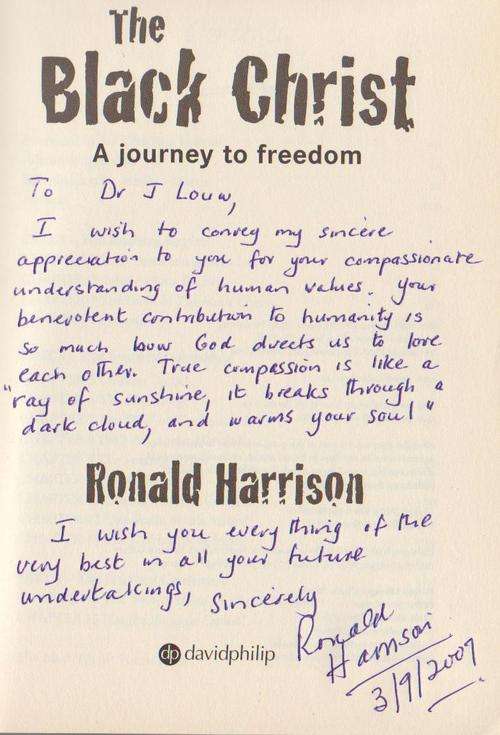 The
Black Christ
A journey to freedom
To Dr J Louw,
I wish to convey my sincere
appreciation to you for your compassionate
understanding of human values. Your
benevolent contribution to humanity is
so much how God directs us to love
each other. True compassion is like a
"ray of sunshine, it breaks through a
dark cloud, and warms your soul"
Ronald Harrison
I wish you everything of the
very best in all your future
undertakings, Sincerely
Ronald
Harrison
3/9/2007
dp davidphilip